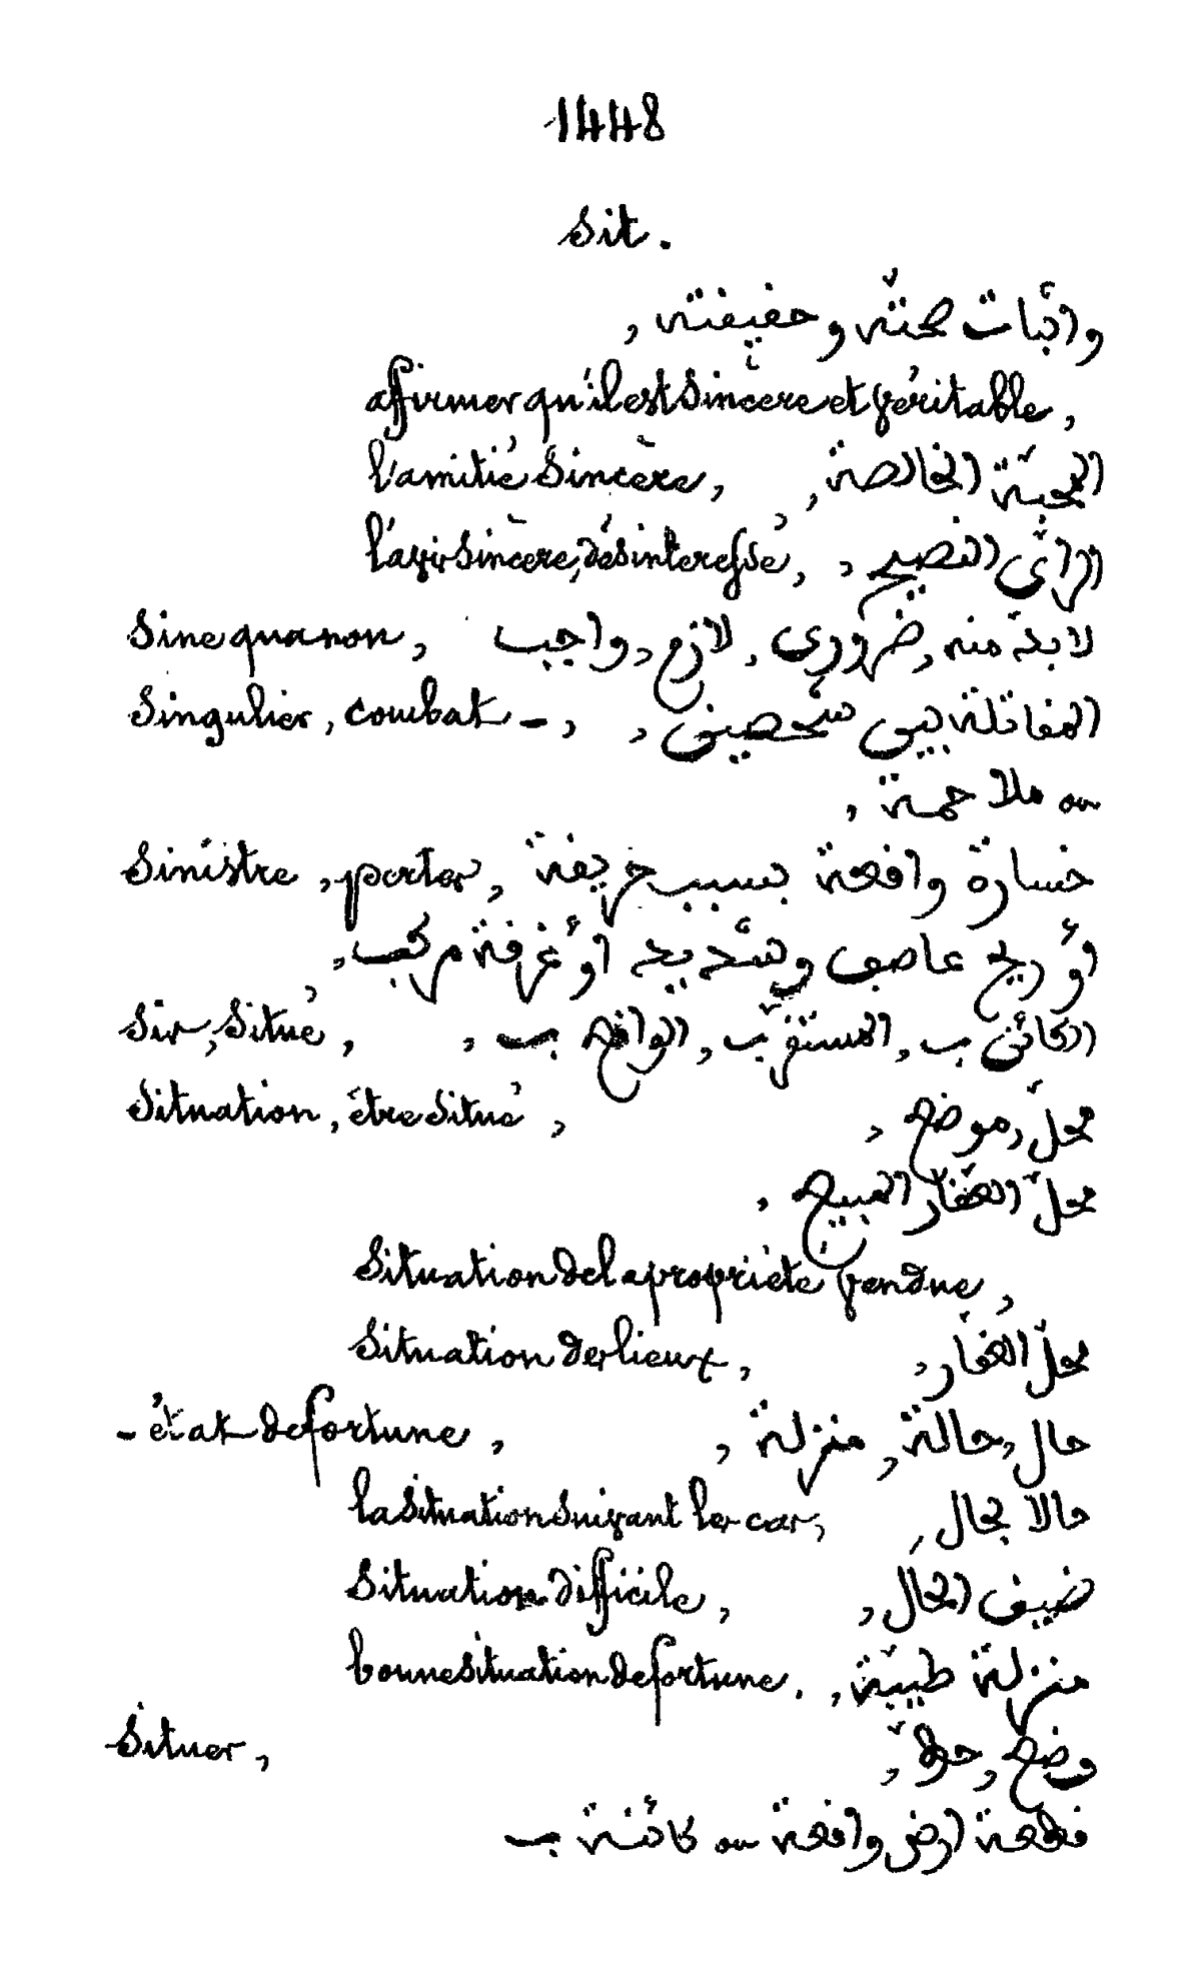 1448
Sit.
واثبات صحّته وحقيقته,
affirmer qu'il est sincère et véritable,
l'amitié sincère, المحبّة الخالصة,
l'avis sincère, désintéressé, الرأي النصيح,
Sine qua non, لابدّ منه, ضروري, لازم, واجب
Singulier, combat -, المقاتلة بين شخصين,
ou ملاحمة,
Sinistre, porter, خسارة واقعة بسبب حريقة
أو ريح عاصف وشديد أو غرقة مركب,
Sis, situé, الكائن ب, المستقرّ ب, الواقع ب,
Situation, être situé, محلّ, موضع,
محلّ العقار المبيع,
Situation de la propriété vendue,
Situation des lieux, محلّ العقار,
- état de fortune, حال, حالة, منزلة,
la situation suivant les cas, حالا بحال,
Situation difficile, ضيق الحال,
bonne situation de fortune, منزلة طيّبة,
Situer, وضع, حطّ,
قطعة ارض واقعة ou كائنة ب